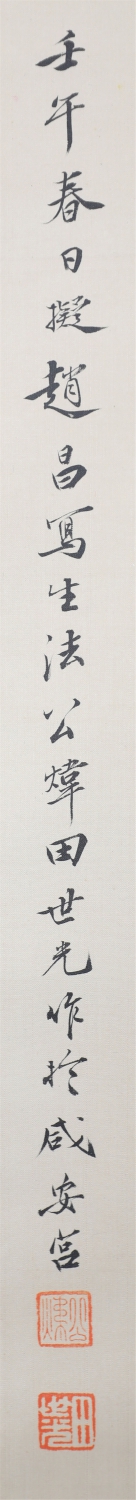 壬午春日擬趙昌寫生法公煒田世光作於咸安宮
公煒
田世光